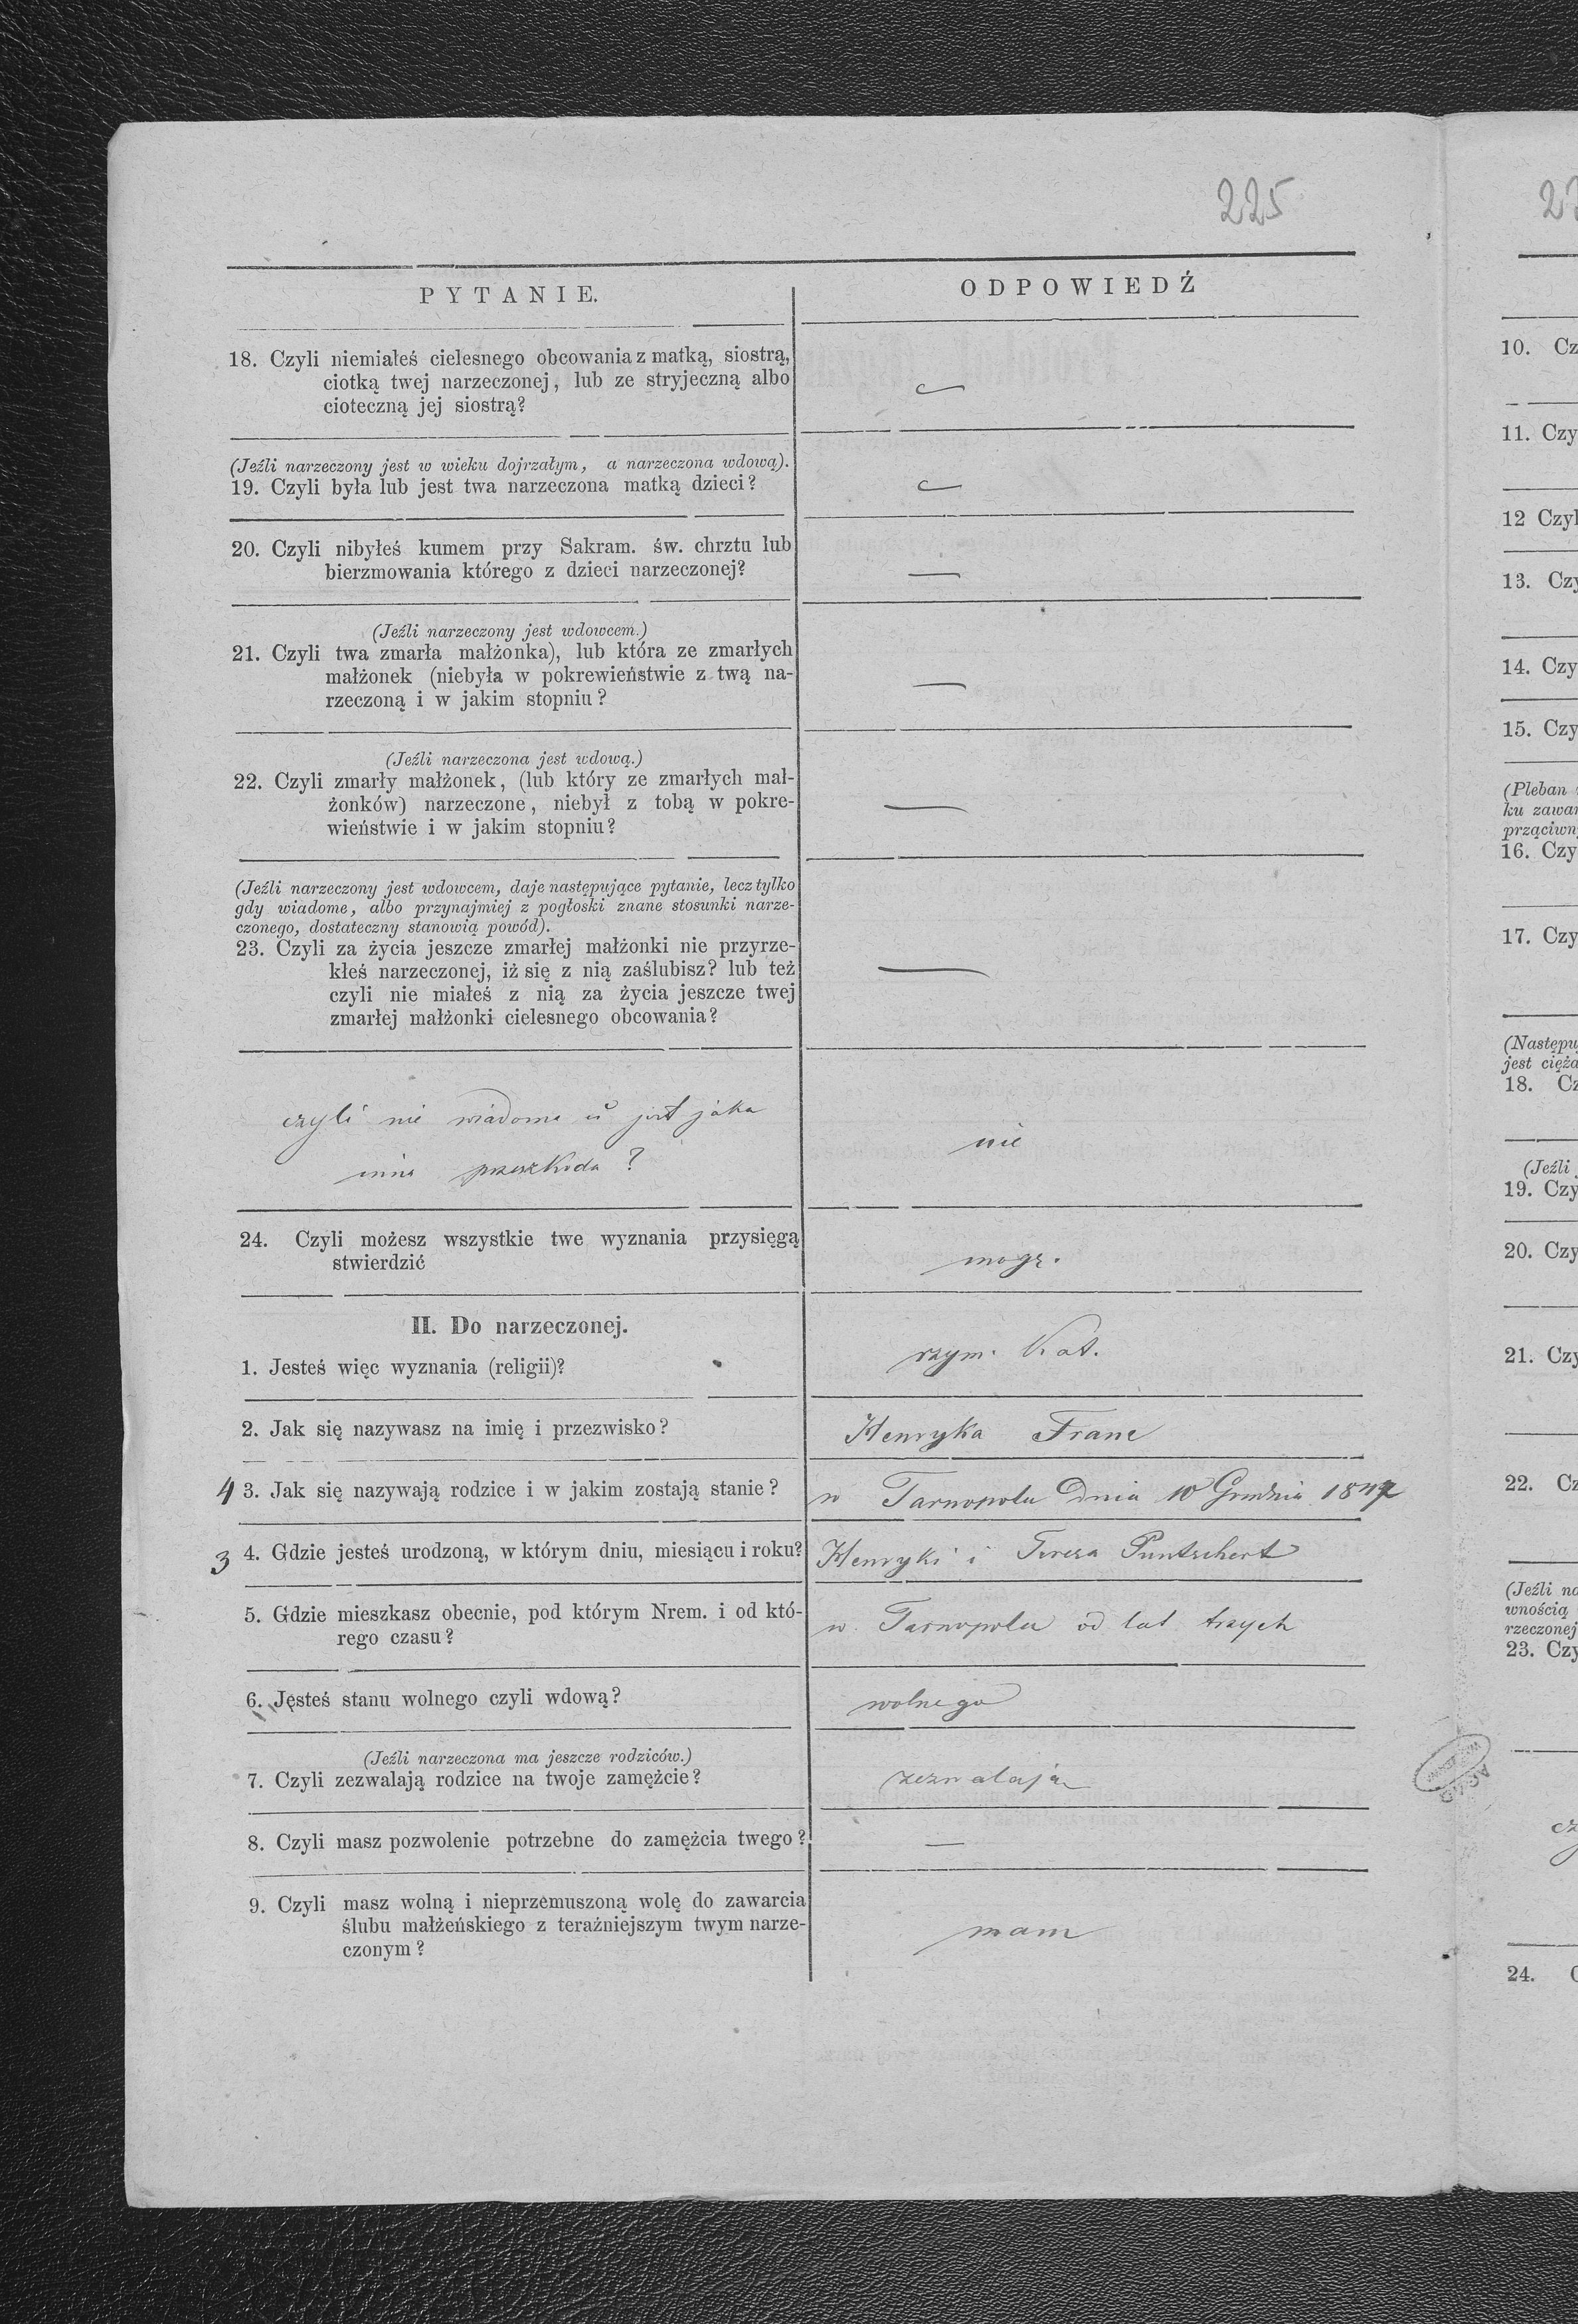 225
PYTANIE.
ODPOWIEDŹ
18. Czyli niemiałeś cielesnego obcowania z matką, siostrą,
ciotką twej narzeczonej, lub ze stryjeczną albo
cioteczną jej siostrą?
—
(Jeźli narzeczony jest w wieku dojrzałym, a narzeczona wdową).
19. Czyli była lub jest twa narzeczona matką dzieci?
—
20. Czyli nibyłeś kumem przy Sakram. św. chrztu lub
bierzmowania którego z dzieci narzeczonej?
—
(Jeźli narzeczony jest wdowcem.)
21. Czyli twa zmarła małżonka), lub która ze zmarłych
małżonek (niebyła w pokrewieństwie z twą na-
rzeczoną i w jakim stopniu?
—
(Jeźli narzeczona jest wdową.)
22. Czyli zmarły małżonek, (lub który ze zmarłych mał-
żonków) narzeczone, niebył z tobą w pokre-
wieństwie i w jakim stopniu?
—
(Jeźli narzeczony jest wdowcem, daje następujące pytanie, lecz tylko
gdy wiadome, albo przynajmiej z pogłoski znane stosunki narze-
czonego, dostateczny stanowią powód).
23. Czyli za życia jeszcze zmarłej małżonki nie przyrze-
kłeś narzeczonej, iż się z nią zaślubisz? lub też
czyli nie miałeś z nią za życia jeszcze twej
zmarłej małżonki cielesnego obcowania?
—
czyli nie wiadoma jest jaka
inna przeszkoda?
nie
24. Czyli możesz wszystkie twe wyznania przysięgą
stwierdzić
mogę.
II. Do narzeczonej.
1. Jesteś więc wyznania (religii)?
rzym. Kat.
2. Jak się nazywasz na imię i przezwisko?
Henryka Franc
4 3. Jak się nazywają rodzice i w jakim zostają stanie?
w Tarnopolu dnia 10 Grudnia
3 4. Gdzie jesteś urodzoną, w którym dniu, miesiącu i roku?
Henryki i Teresa Puntschert
5. Gdzie mieszkasz obecnie, pod którym Nrem. i od któ-
rego czasu?
w Tarnopolu od lat trzych
6. Jęsteś stanu wolnego czyli wdową?
wolnego
(Jeźli narzeczona ma jeszcze rodziców.)
7. Czyli zezwalają rodzice na twoje zamężcie?
zezwalają
8. Czyli masz pozwolenie potrzebne do zamężcia twego?
—
9. Czyli masz wolną i nieprzemuszoną wolę do zawarcia
ślubu małżeńskiego z teraźniejszym twym narze-
czonym?
mam
10. Cz
11. Czy
12 Czyl
13. Czy
14. Czy
15. Czy
(Pleban
ku zawar
prząciwn
16. Czy
17. Czy
(Następu
jest cięża
18. Cz
(Jeźli
19. Czy
20. Czy
21. Czy
22. Cz
(Jeźli na
wnością
rzeczonej
23. Czy
24. C